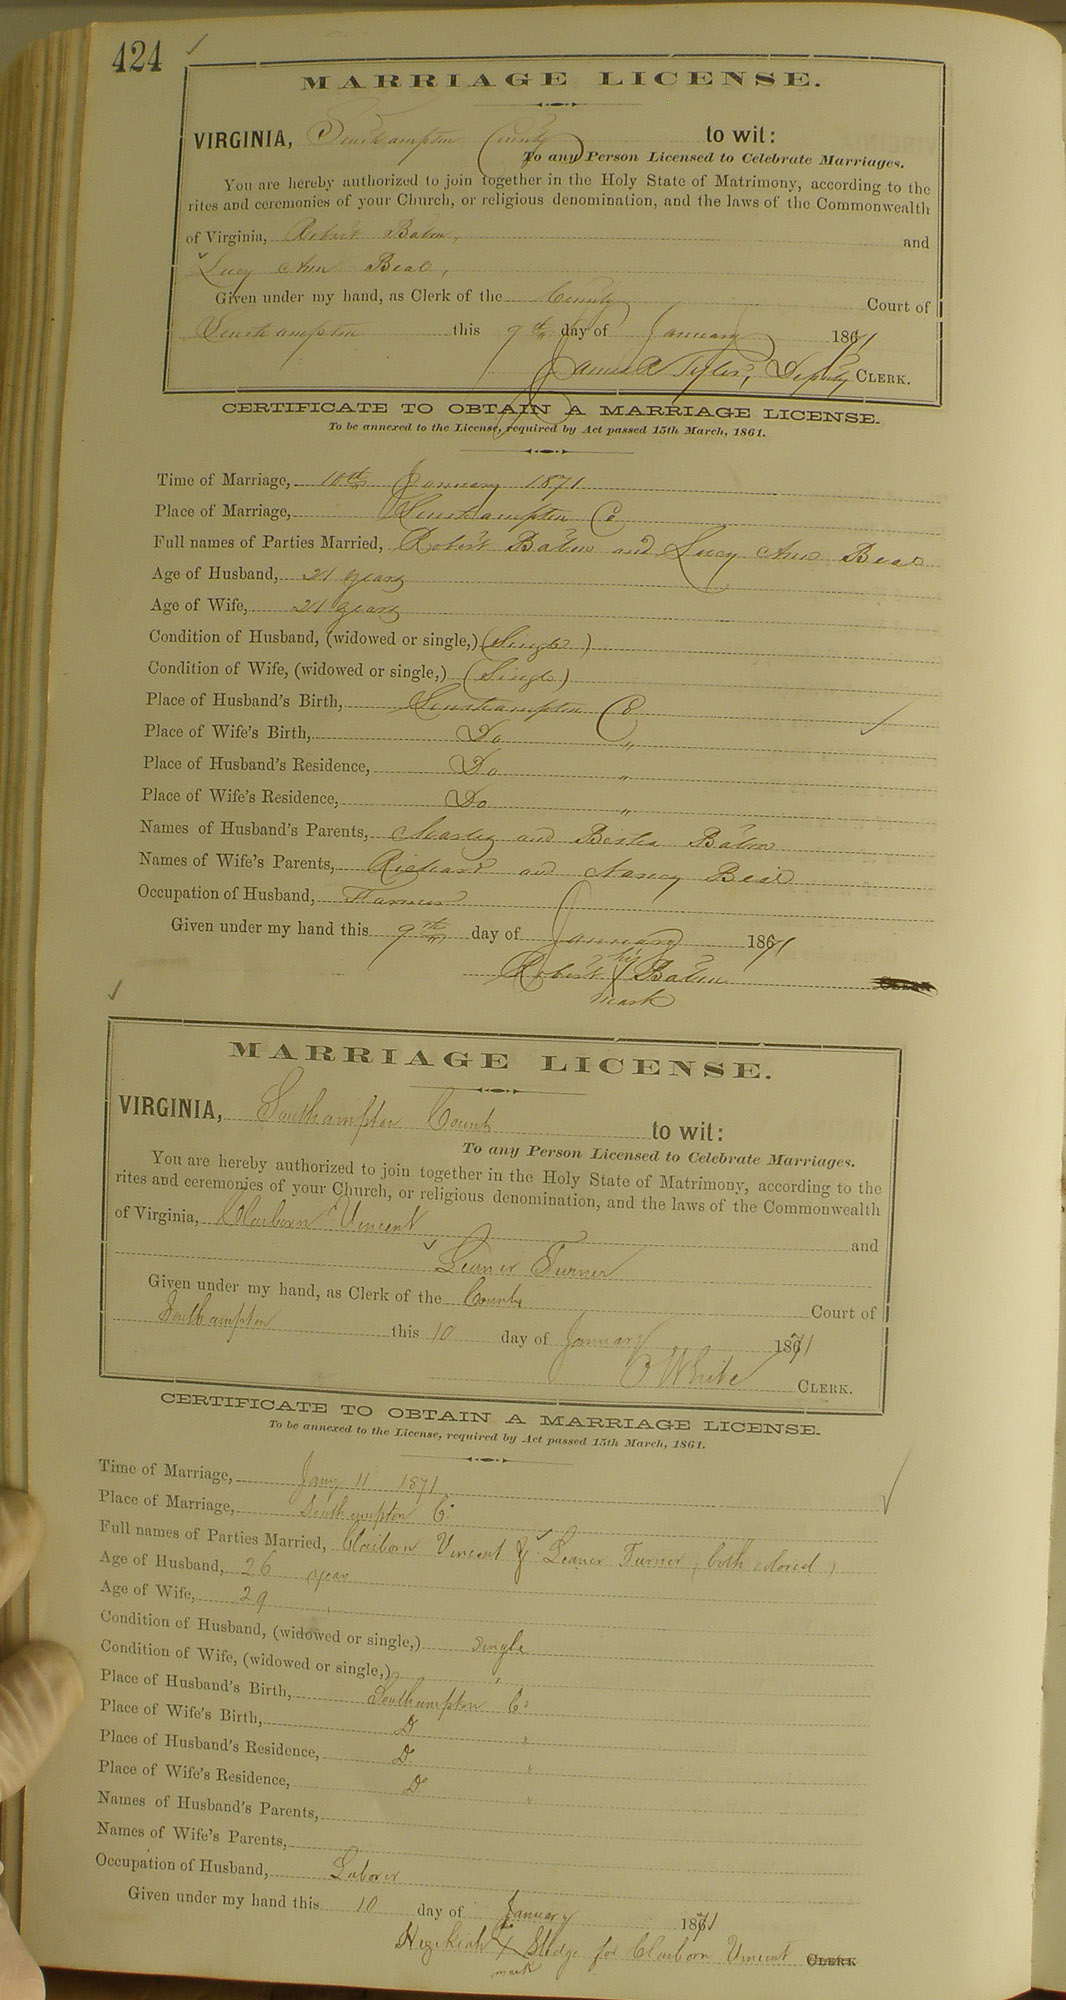 424
MARRIAGE LICENSE.
VIRGINIA, Southampton County to wit:
To any Person Licensed to Celebrate Marriages.
You are hereby authorized to join together in the Holy State of Matrimony, according to the
rites and ceremonies of your Church, or religious denomination, and the laws of the Commonwealth
of Virginia, Robert and
Lucy Ann Beal,
Given under my hand, as Clerk of the County Court of
Southampton this 9th day of January 1871
James R Tyler, Deputy CLERK.
CERTIFICATE TO OBTAIN A MARRIAGE LICENSE.
To be annexed to the License, required by Act passed 15th March, 1861.
Time of Marriage, 10th January 1871
Place of Marriage, Southampton Co
Full names of Parties Married, Robert and Lucy Ann Beal
Age of Husband, 21 years
Age of Wife, 21 years
Condition of Husband, (widowed or single,) (Single)
Condition of Wife, (widowed or single,) (Single)
Place of Husband's Birth, Southampton Co
Place of Wife's Birth, Do "
Place of Husband's Residence, Do "
Place of Wife's Residence, Do "
Names of Husband's Parents, and
Names of Wife's Parents, Richard and Nancy Beal
Occupation of Husband, Farmer
Given under my hand this 9th day of January 1871
his
Robert X
mark
MARRIAGE LICENSE.
VIRGINIA, Southampton County to wit:
To any Person Licensed to Celebrate Marriages.
You are hereby authorized to join together in the Holy State of Matrimony, according to the
rites and ceremonies of your Church, or religious denomination, and the laws of the Commonwealth
of Virginia, Claiborn Vincent and
Leaner Turner
Given under my hand, as Clerk of the County Court of
Southampton this 10 day of January 1871
White CLERK.
CERTIFICATE TO OBTAIN A MARRIAGE LICENSE.
To be annexed to the License, required by Act passed 15th March, 1861.
Time of Marriage, Jany 11 1871
Place of Marriage, Southampton Co
Full names of Parties Married, Claiborn Vincent & Leaner Turner (both colored)
Age of Husband, 26 years
Age of Wife, 29 "
Condition of Husband, (widowed or single,) single
Condition of Wife, (widowed or single,) "
Place of Husband's Birth, Southampton Co
Place of Wife's Birth, Do "
Place of Husband's Residence, Do "
Place of Wife's Residence, Do "
Names of Husband's Parents,
Names of Wife's Parents,
Occupation of Husband, Laborer
Given under my hand this 10 day of January 1871
his
Hezekiah X Sledge for Claiborn Vincent CLERK
mark